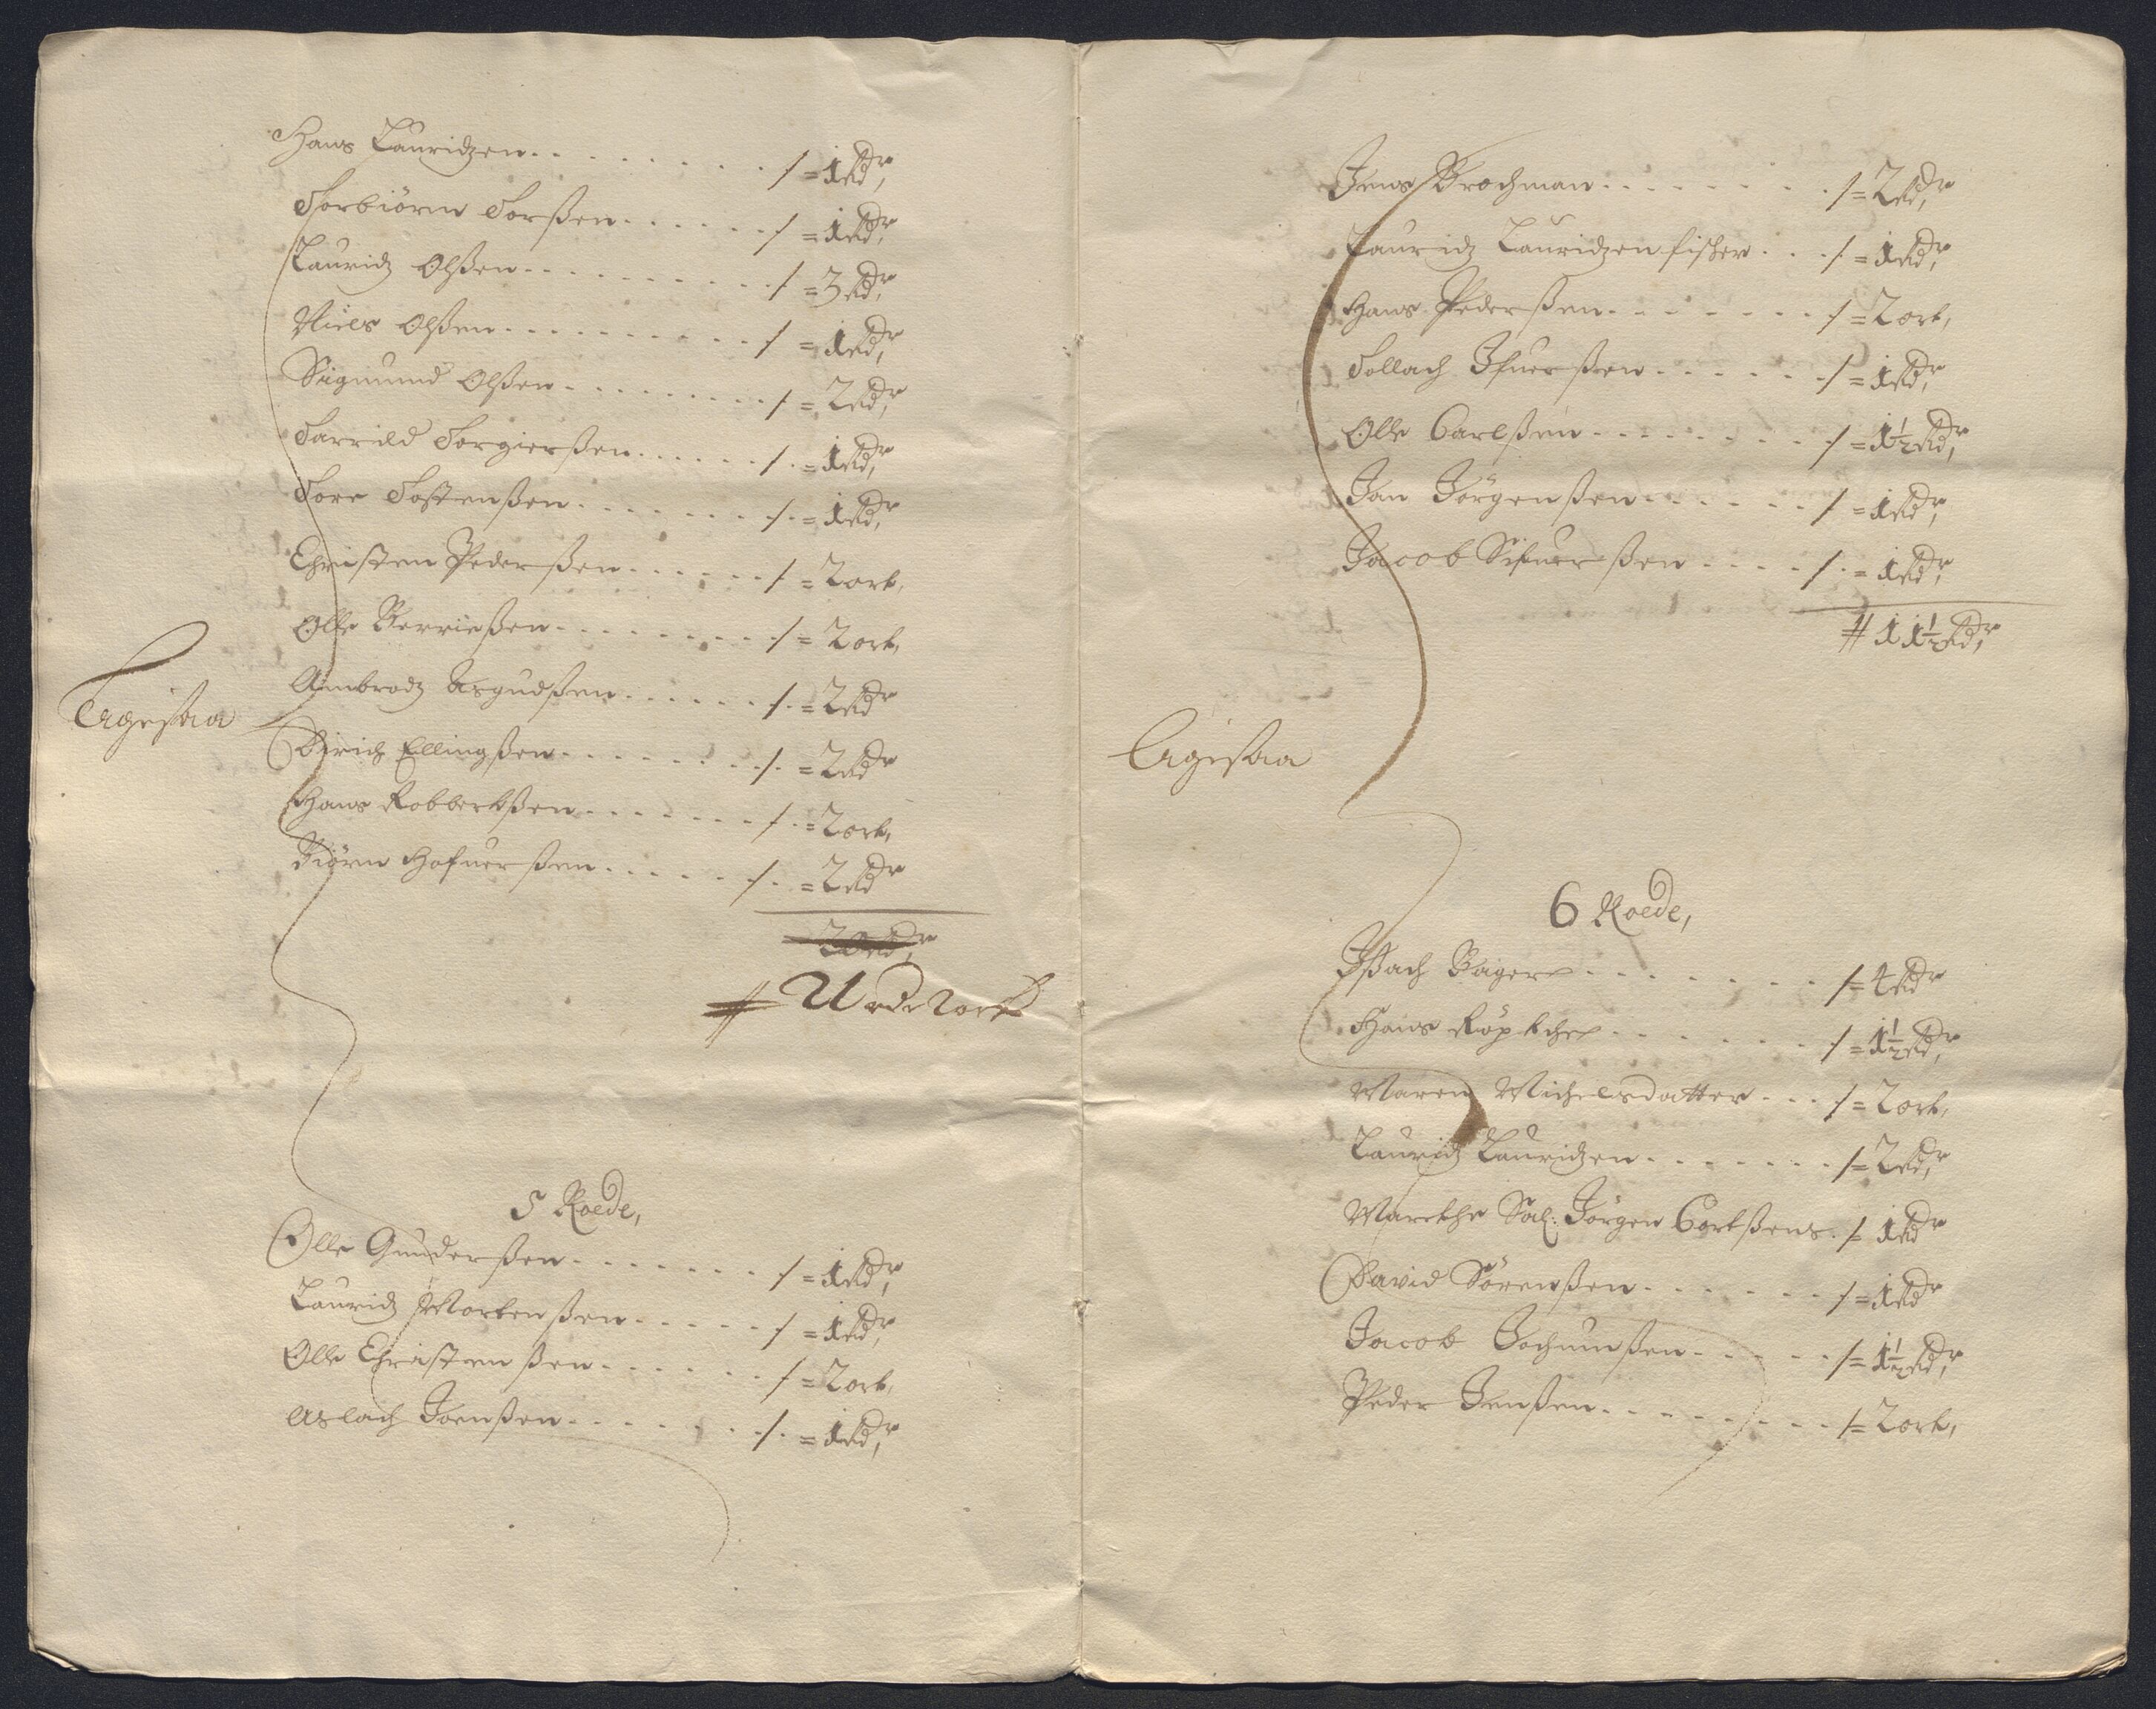 Hans Lauridzen . . . . . . . . . /=1 Rdr,
Torbiörn Torßen . . . . . . /=1 Rdr,
Lauridz Olßen . . . . . . . . . /=3 Rdr,
Niels Olßen . . . . . . . . . . /=1 Rdr,
Sigmund Olßen . . . . . . . . . /=2 Rdr,
Tarrild Torgierßen . . . . . . /.=1 Rdr,
Tore Tostenßen . . . . . . . . /.=1 Rdr,
Christen Pederßen . . . . . . /=2 ort,
Olle Berrießen . . . . . . . . . /=2 ort,
Ambrodz Asgudßen . . . . . . /.=2 Rdr
Agesaa
Dirich Ellingßen . . . . . . . . /.=2 Rdr
Hans Robbertßen . . . . . . . /.=2 ort,
Biörn Hafuerßen . . . . . . /.=2 Rdr
20 Rdr,
# 21 Rdr 2 ort
5 Roede,
Olle Gunderßen . . . . . . . /=1 Rdr,
Lauridz Mortenßen . . . . . /=1 Rdr,
Olle Christenßen . . . . . . /=2 ort,
Aslach Joenßen . . . . . . . /.=1 Rdr,
Jens Brochman . . . . . . . . /=2 Rdr,
Lauridz Lauridzen fisker . . . /=1 Rdr,
Hans Pederßen . . . . . . . . /=2 ort,
Tollach Ifuerßen . . . . . . /=1 Rdr,
Olle Carlßen . . . . . . . . . /=1½ Rdr,
Jan Jörgenßen . . . . . . . /=1 Rdr,
Jacob Sifuerßen . . . . /.=1 Rdr,
# 11½ Rdr,
Agesaa
6 Roede,
Ißach Bager . . . . . . . . /=4 Rdr
Hans Röpkche . . . . . . . /=1½ Rdr,
Maren Michelsdatter . . . /=2 ort,
Lauridz Lauridzen . . . . . . . /=2 Rdr,
Marethe Sal: Jörgen Cortßens . /=1 Rdr
David Sörenßen . . . . . . . /=1 Rdr
Jacob Jochumßen . . . . . /=1½ Rdr,
Peder Jenßen . . . . . . . . . /=2 ort,